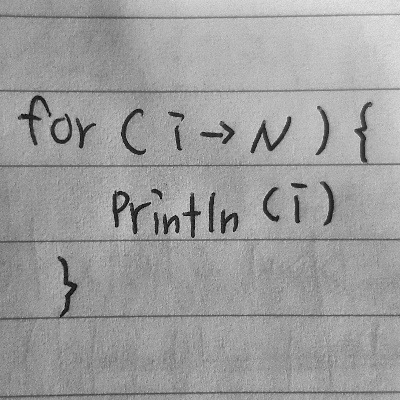 for (i → N) {
println (i)
}